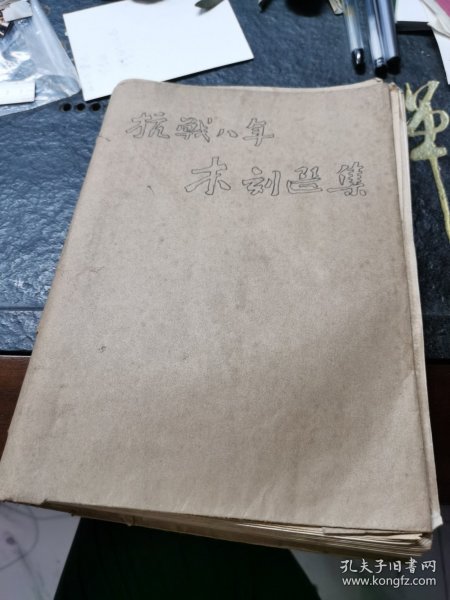 抗戰八年
木刻选集
孔夫子旧书网
www.kongfz.com